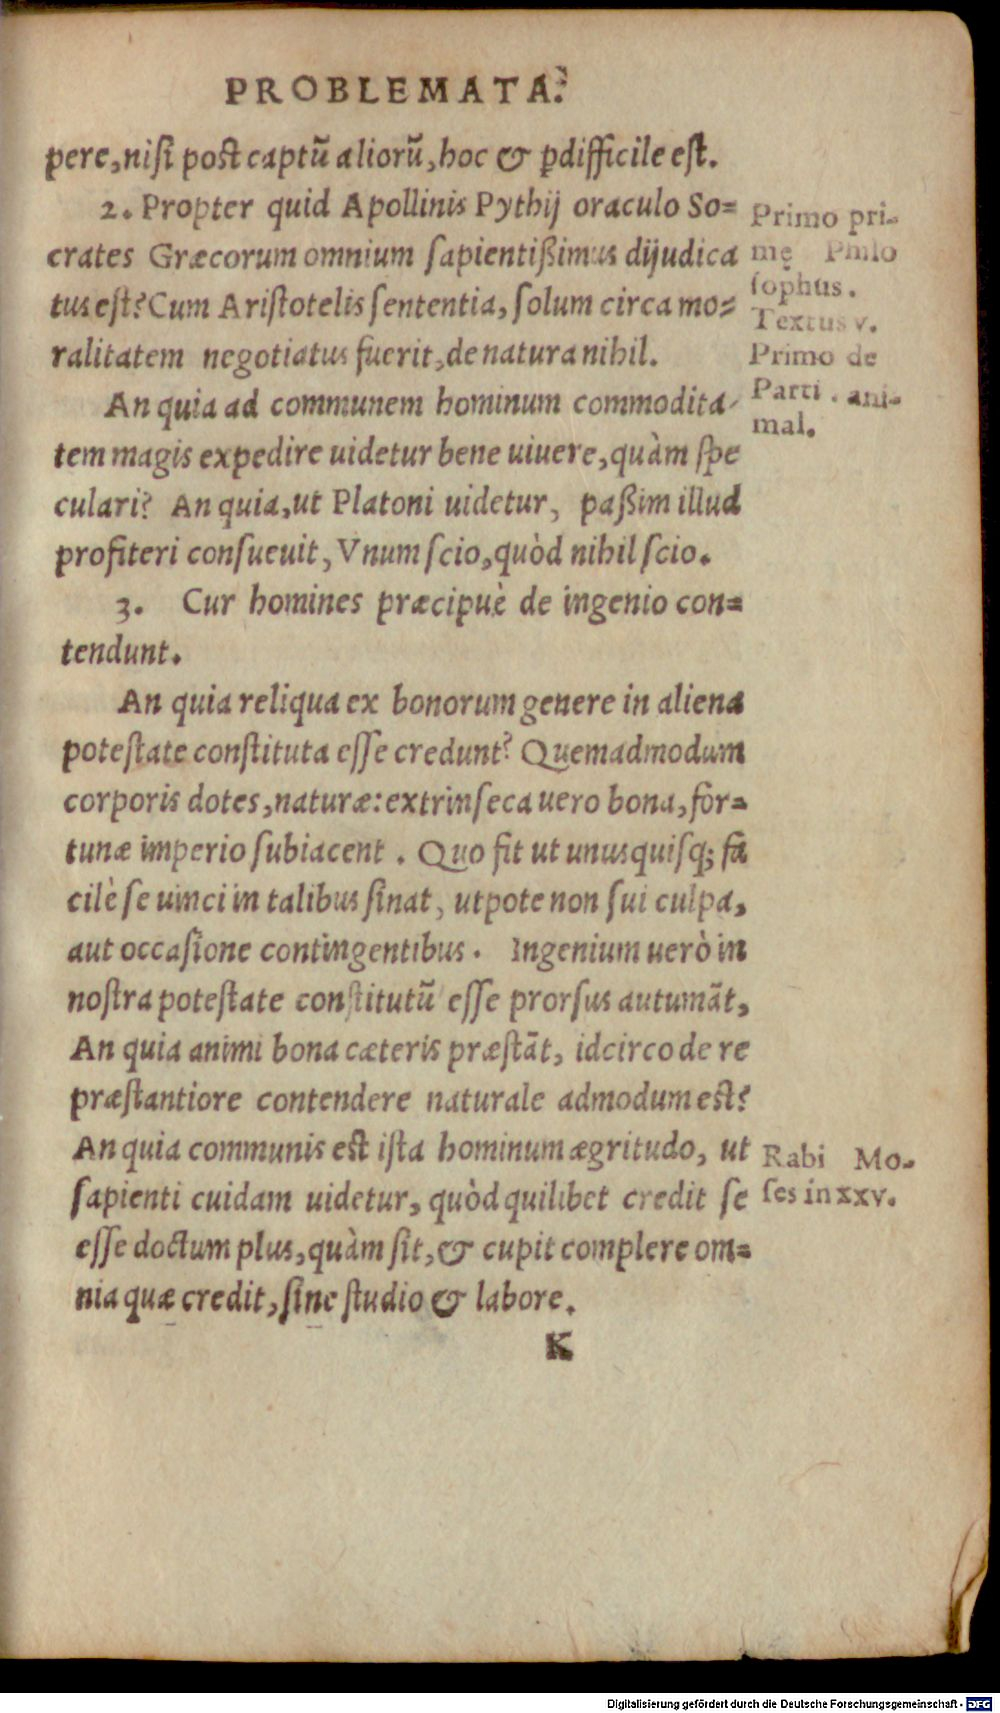 PROBLEMATA.
pere, niſi poſt captū aliorū, hoc & ꝑdifficile eſt.
2. Propter quid Apollinis Pythij oraculo So=
crates Græcorum omnium ſapientißimus dijudica
tus eſt? Cum Ariſtotelis ſententia, ſolum circa mo=
ralitatem negotiatus fuerit, de natura nihil.
An quia ad communem hominum commodita-
tem magis expedire uidetur bene uiuere, quàm ſpe
culari? An quia, ut Platoni uidetur, paßim illud
profiteri conſueuit, Vnum ſcio, quòd nihil ſcio.
3. Cur homines præcipuè de ingenio con=
tendunt.
An quia reliqua ex bonorum genere in aliena
poteſtate conſtituta eſſe credunt? Quemadmodum
corporis dotes, naturæ: extrinſeca uero bona, for=
tunæ imperio ſubiacent. Quo fit ut unusquiſq; fa
cilè ſe uinci in talibus ſinat, utpote non ſui culpa,
aut occaſione contingentibus. Ingenium uerò in
noſtra poteſtate conſtitutū eſſe prorſus autumāt,
An quia animi bona cæteris præſtāt, idcirco de re
præſtantiore contendere naturale admodum eſt?
An quia communis eſt iſta hominum ægritudo, ut
ſapienti cuidam uidetur, quòd quilibet credit ſe
eſſe doctum plus, quàm ſit, & cupit complere om=
nia quæ credit, ſine ſtudio & labore.
K
Primo pri-
mę Philo
ſophus.
Textus v.
Primo de
Parti. ani-
mal.
Rabi Mo-
ſes in xxv.
Digitalisierung gefördert durch die Deutsche Forschungsgemeinschaft - DFG